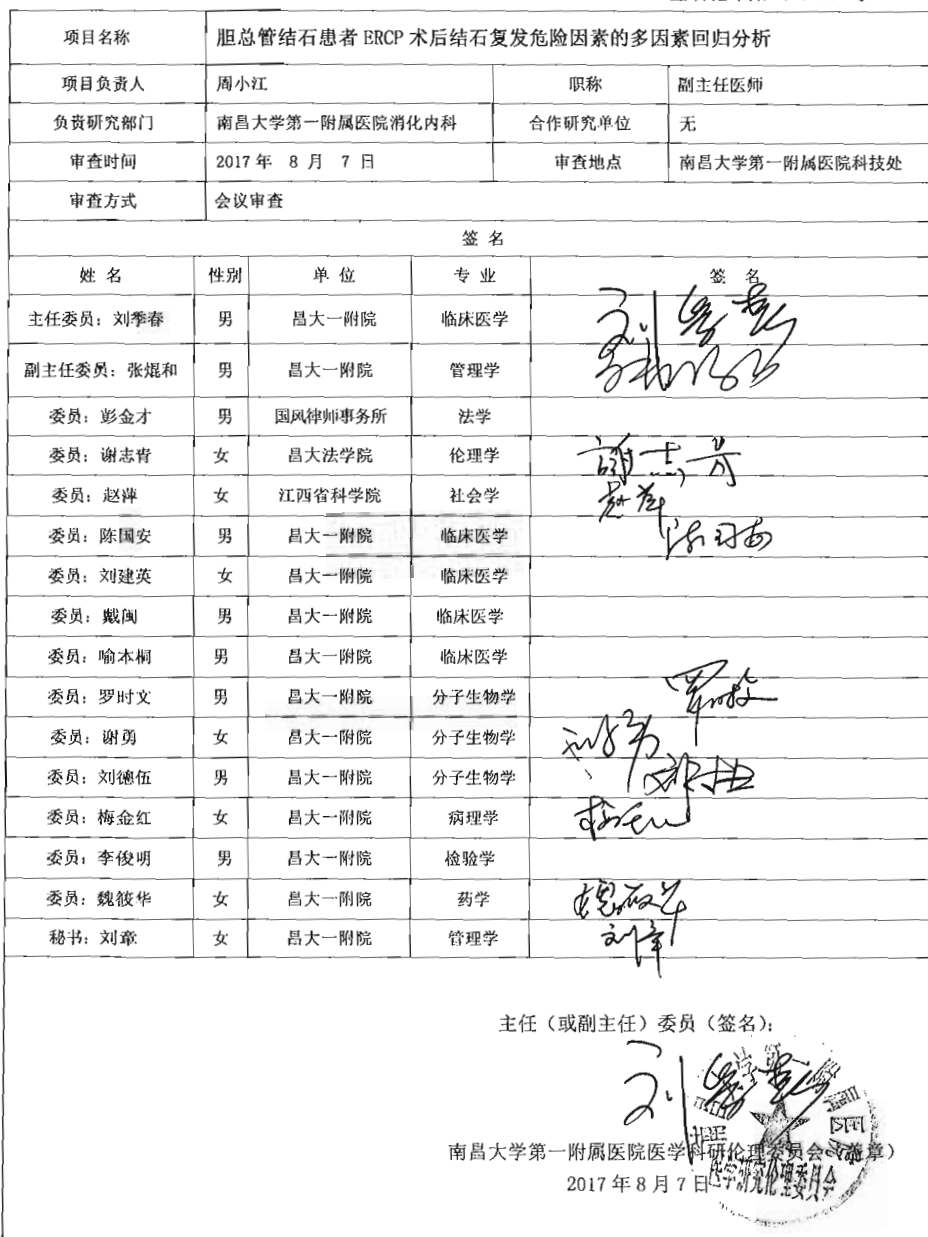 项目名称 胆总管结石患者 ERCP 术后结石复发危险因素的多因素回归分析
项目负责人 周小江 职称 副主任医师
负责研究部门 南昌大学第一附属医院消化内科 合作研究单位 无
审查时间 2017 年 8 月 7 日 审查地点 南昌大学第一附属医院科技处
审查方式 会议审查
签 名
姓 名 性别 单 位 专 业 签 名
主任委员：刘季春 男 昌大一附院 临床医学 刘季春
副主任委员：张焜和 男 昌大一附院 管理学
委员：彭金才 男 国风律师事务所 法学
委员：谢志青 女 昌大法学院 伦理学 谢志青
委员：赵萍 女 江西省科学院 社会学 赵萍
委员：陈国安 男 昌大一附院 临床医学 陈国安
委员：刘建英 女 昌大一附院 临床医学
委员：戴闽 男 昌大一附院 临床医学
委员：喻本桐 男 昌大一附院 临床医学
委员：罗时文 男 昌大一附院 分子生物学
委员：谢勇 女 昌大一附院 分子生物学
委员：刘德伍 男 昌大一附院 分子生物学
委员：梅金红 女 昌大一附院 病理学
委员：李俊明 男 昌大一附院 检验学
委员：魏筱华 女 昌大一附院 药学 魏筱华
秘书：刘章 女 昌大一附院 管理学 刘章
主任（或副主任）委员（签名）：
刘季春
南昌大学第一附属医院医学科研伦理委员会（盖章）
2017 年 8 月 7 日
医学研究伦理委员会